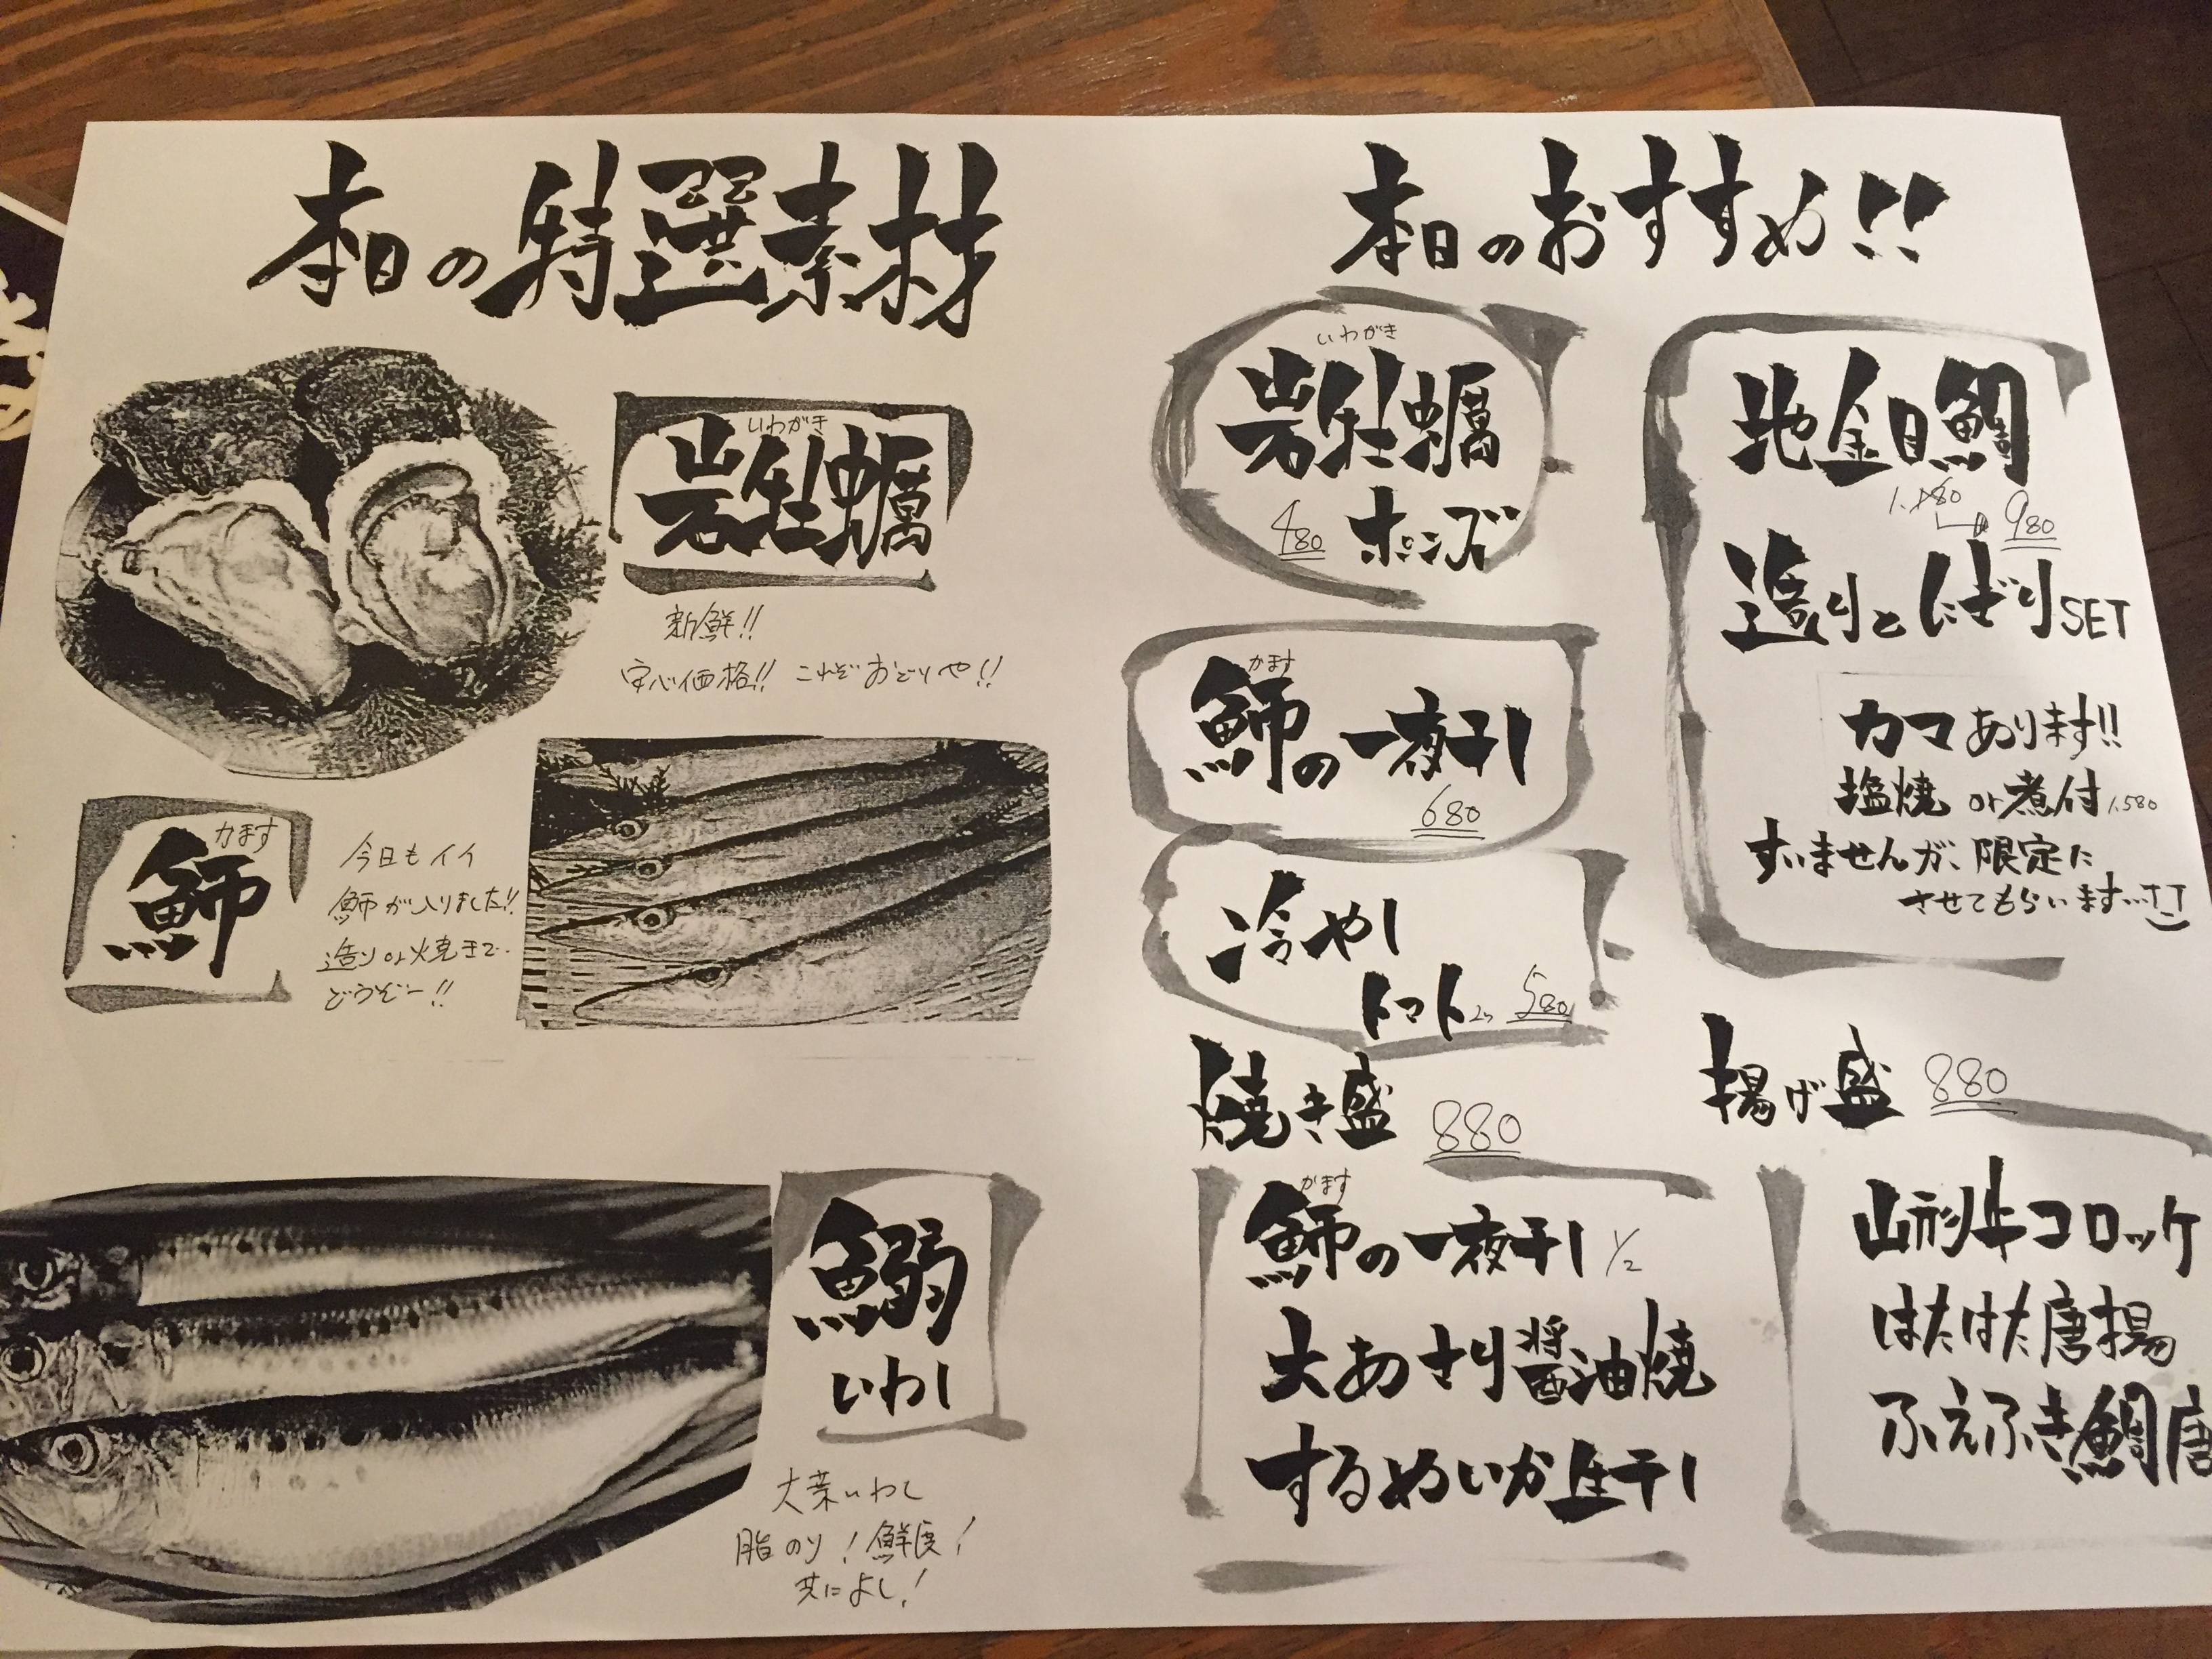 本日の特選素材
いわがき
岩牡蠣
新鮮!!
安心価格!! これぞおどりや!!
かます
魳
今日もイイ
魳が入りました!!
造りor焼きで..
どうぞー!!
鰯
いわし
大葉いわし
脂のり!鮮度!
共によし!
本日のおすすめ!!
いわがき
岩牡蠣
480 ポンズ
かます
魳の一夜干し
680
冷やし
トマト 580
焼き盛 880
かます
魳の一夜干し 1/2
大あさり醤油焼
するめいか生干し
地金目鯛
980
造りとにぎりSET
カマあります!!
塩焼or煮付1,580
すいませんが、限定に
させてもらいます…
揚げ盛 880
山形牛コロッケ
はたはた唐揚
ふえふき鯛唐